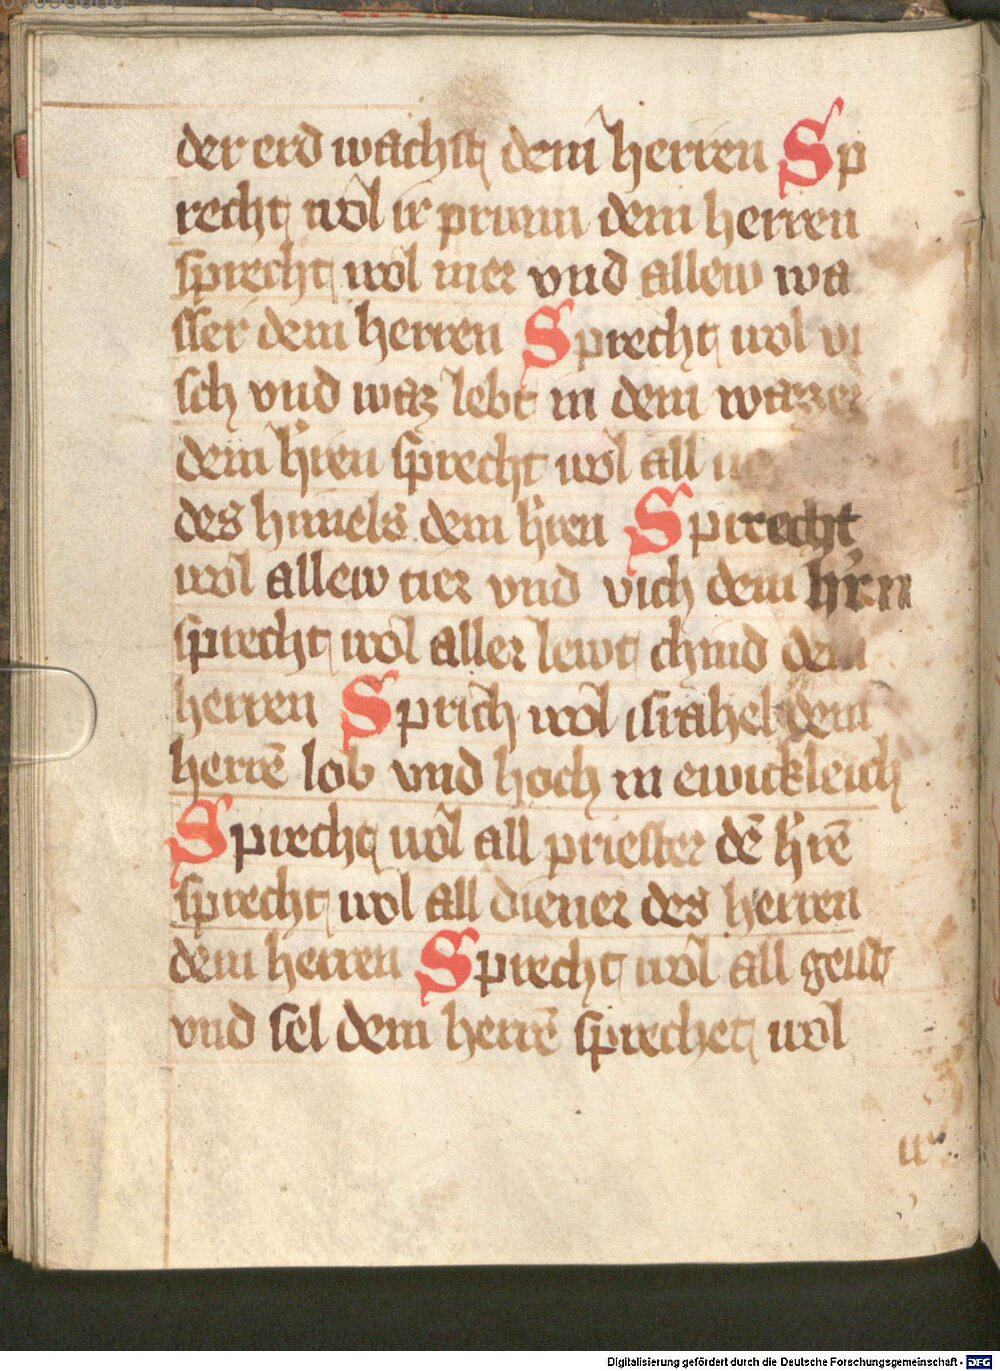 der erd wachst dem herren Sp
recht wol ir prunn dem herren
sprecht wol mer vnd allew wa
sser dem herren Sprecht wol vi
sch vnd waz lebt in dem wazzer
dem h'ren sprecht wol all
des himels dem h'ren Sprecht
wol allew tier vnd vich dem h'ren
sprecht wol aller lewt chind dem
herren Sprich wol israhel dem
herrē lob vnd hoch in ewickleich
Sprecht wol all priester dē h'rē
sprecht wol all diener des herren
dem herren Sprecht wol all geist
vnd sel dem herrē sprechet wol
Digitalisierung gefördert durch die Deutsche Forschungsgemeinschaft - DFG